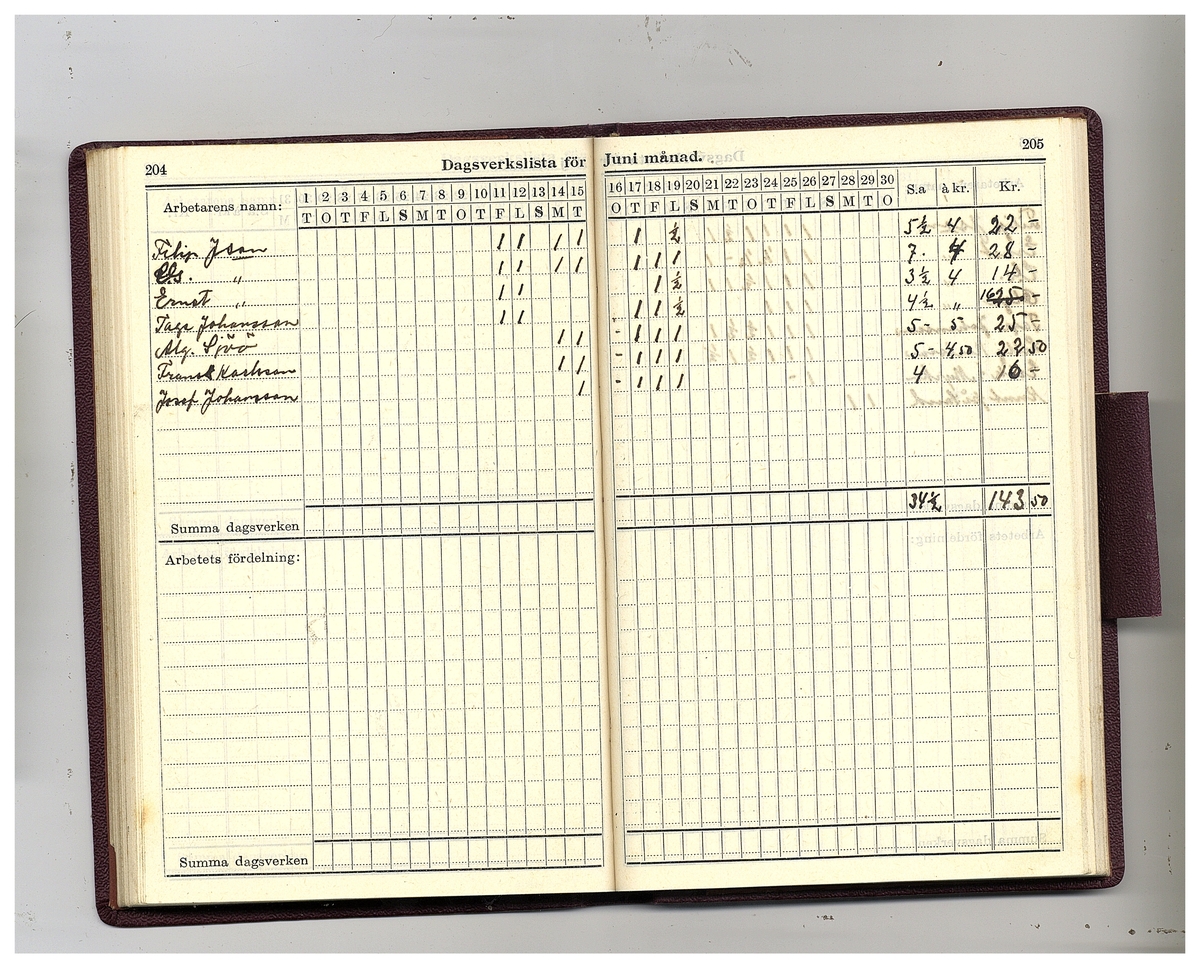 204
Dagsverkslista för Juni månad.
205
Arbetarens namn: 1 2 3 4 5 6 7 8 9 10 11 12 13 14 15 16 17 18 19 20 21 22 23 24 25 26 27 28 29 30 S:a à kr. Kr.
T O T F L S M T O T F L S M T O T F L S M T O T F L S M T O
Filip Json 1 1 1 1 1 ½ 5½ 4 22 -
" 1 1 1 1 1 1 1 7. 4 28 -
Ernst " 1 1 1 ½ 3½ 4 14 -
Tage Johansson 1 1 1 1 ½ 4½ " 16 -
Alg. Sjöö 1 1 - 1 1 1 5 - 5 25 -
Frans Karlsson 1 1 - 1 1 1 5 - 4 50 22 50
Josef Johansson 1 - 1 1 1 4 16 -
Summa dagsverken 34½ 143 50
Arbetets fördelning:
Summa dagsverken